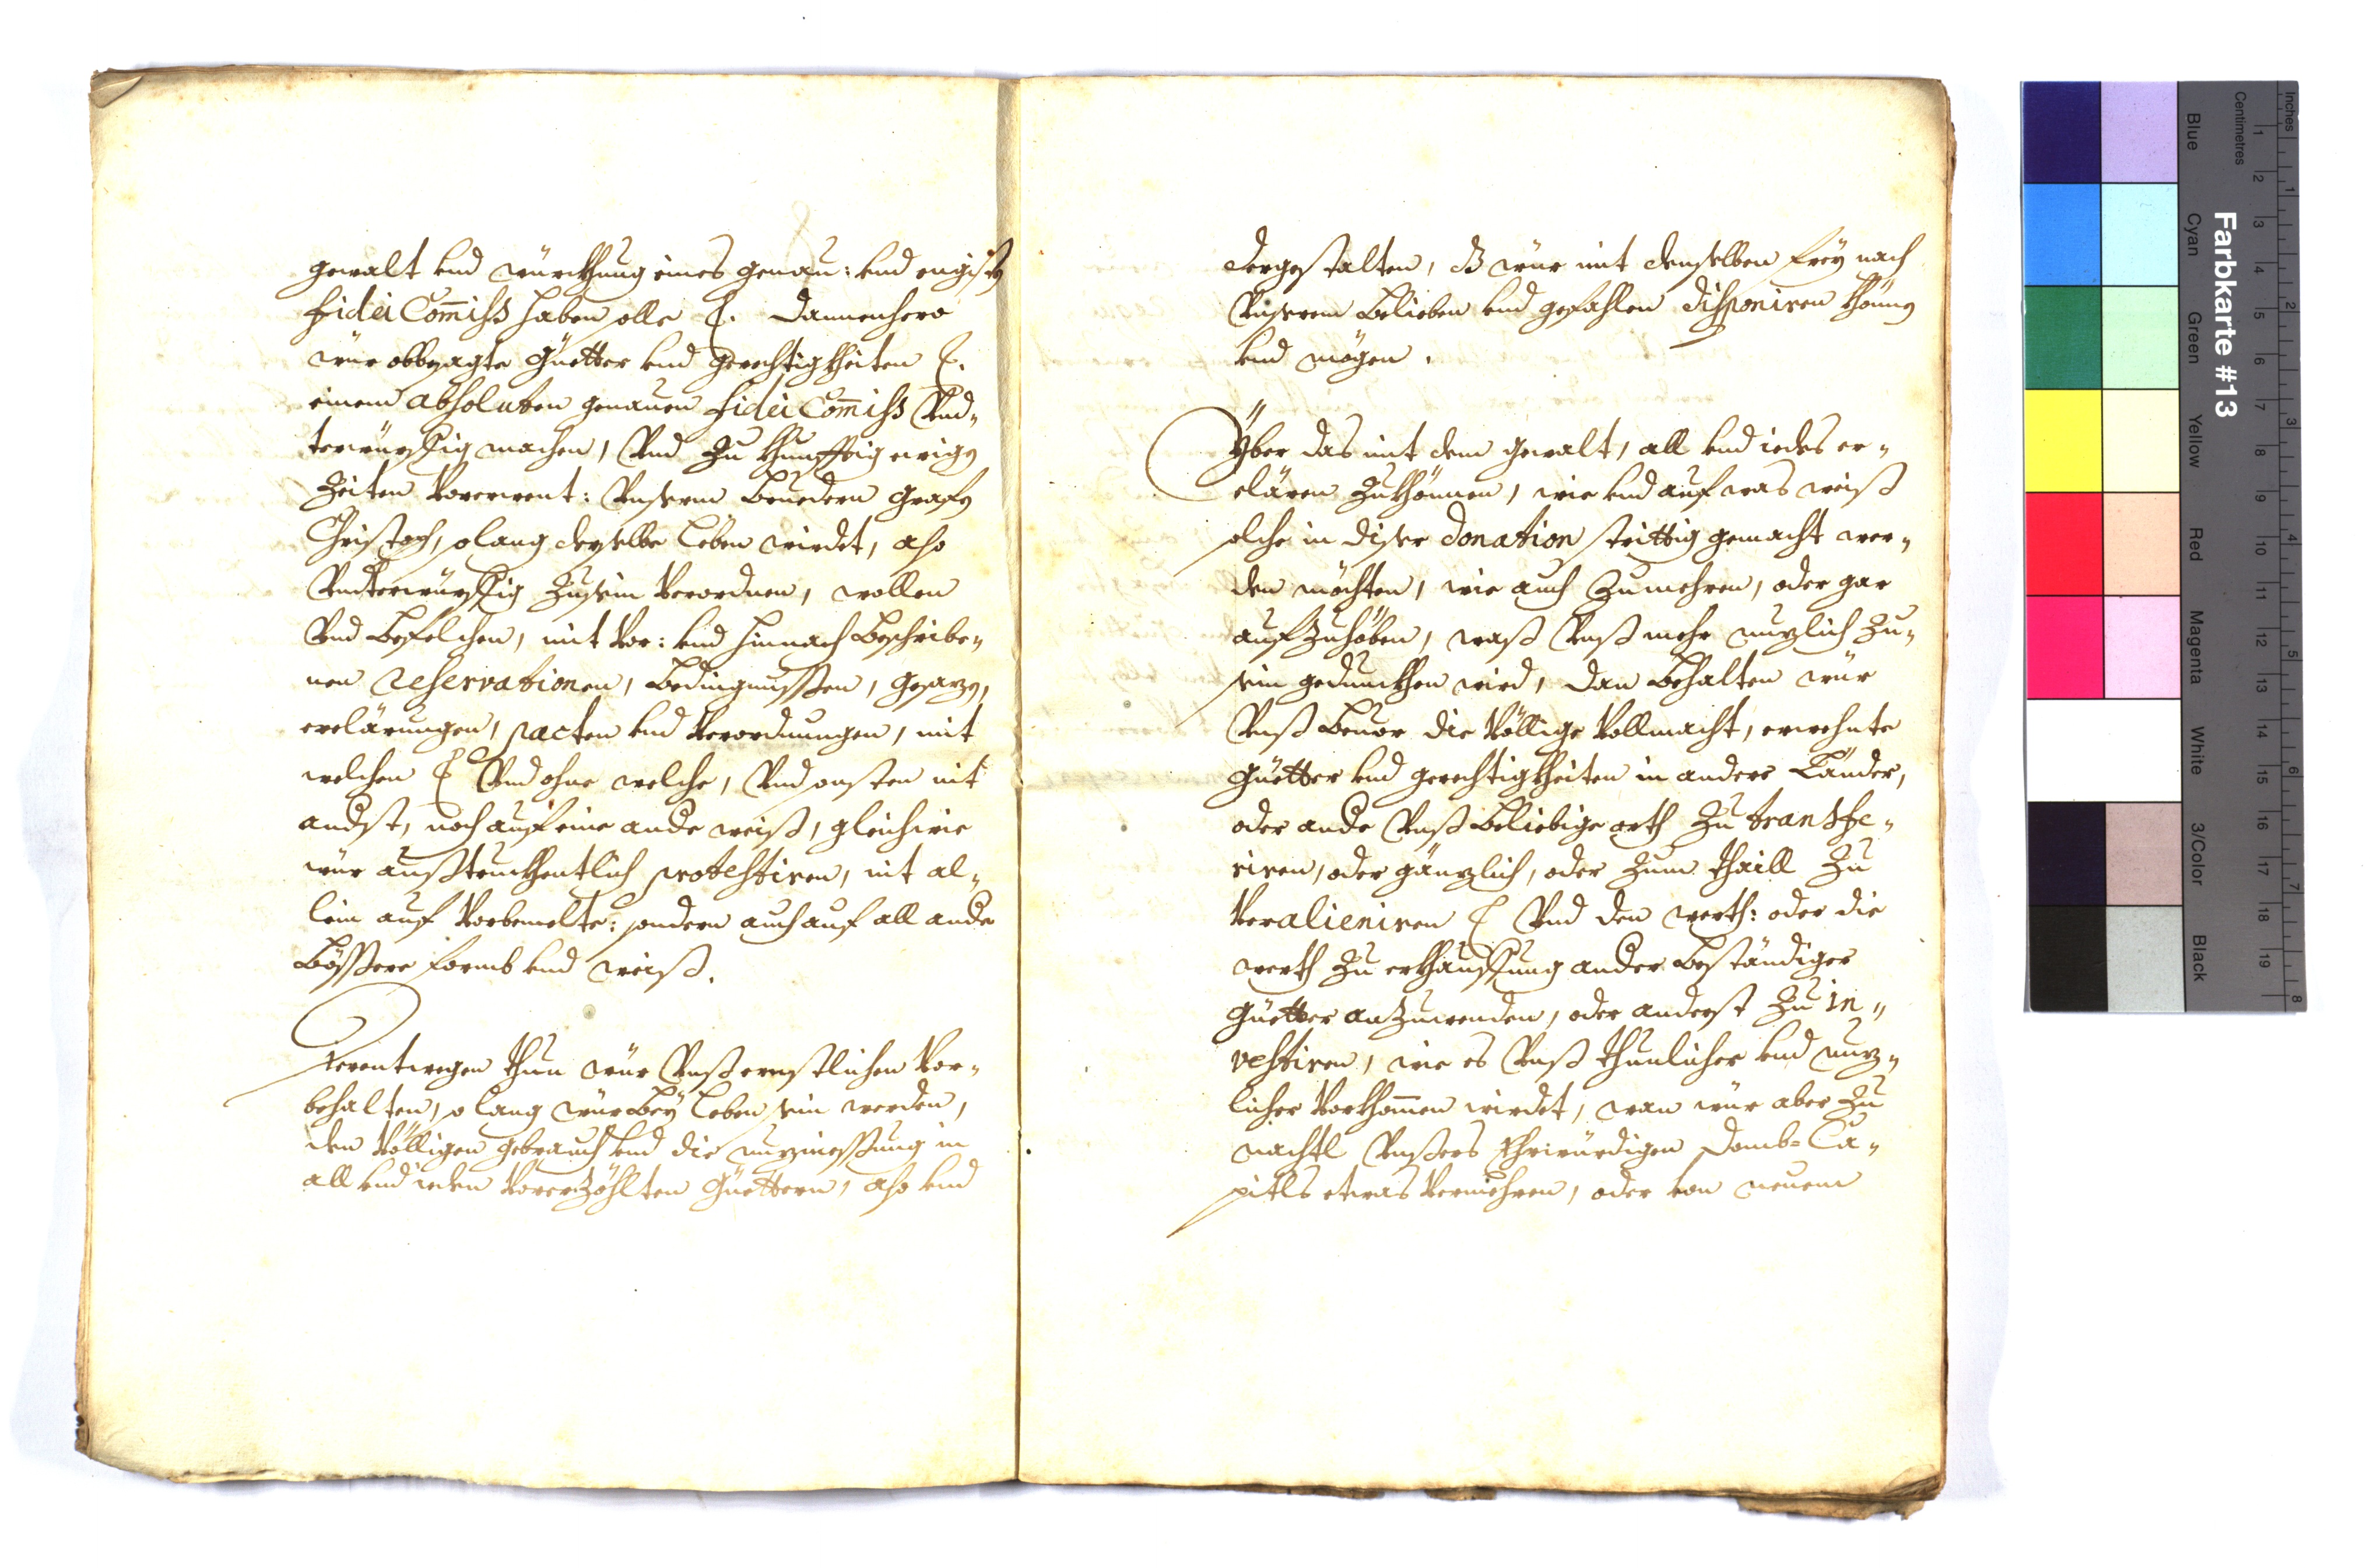 gewalt vnd würckhung eines genau: vnd engisten
fidei Com̅iss haben solle &. Dannenhero
wür obbesagte Güetter vnd gerechtigkheiten &.
einem absoluten genauen fidei Com̅iss Vnd„
terwürffig machen, Vnd zu khünfftig ewigen
Zeiten vorerwent: Vnserem Bruedern Grafen
Christoph, solang derselbe leben wirdet, also
Vndterwürffig zusein verordnen, wollen
Vnd befelchen, mit vor: vnd hinnach beschribe„
nen reservationen, bedingnussen, gesazen,
erclärungen, pacten vnd verordnungen, mit
welchen & Vnd ohne welche, Vnd sonsten nit
anderst, noch auf eine andere weiß, gleichwie
wür außtruckhentlich protestiren, nit al„
lein auf vorbemelte: sondern auch auf all andere
bössere formb vnd weiß.
Derentwegen thun wür Vnß ernstlichen vor„
behalten, so lang wür bey leben sein werden,
den völligen gebrauch vnd die nuzniessung in
all vnd ieden vorerzöhlten Güettern, also vnd
dergestalten, dß wür mit denselben frey nach
Vnserem belieben vnd gefahlen disponiren khönnen
vnd mögen.
Yber das mit dem gewalt, all vnd iedes er„
clären zukhönnen, wie vnd auf was weiß
solche in diser donation strittig gemacht wer„
den möchten, wie auch zumehren, oder gar
aufzuhöben, waß Vnß mehr nuzlich zu„
sein geduncken wird, dan behalten wür
Vnß beuor die völlige vollmacht, erwehnte
Güetter vnd gerechtigkheiten in andere Länder,
oder andere Vnß beliebige orth zu transfe„
riren, oder gänzlich, oder zum thaill zu
veralieniren & Vnd den werth: oder die
werth zu erkhauffung ander beständiger
Güetter anzuwenden, oder anderst zu in„
vestiren, wie es Vnß thunlicher vnd nuz„
licher vorkhom̅en wirdet, wan wür aber zu
nachtl Vnßers Ehrwürdigen Domb-Ca„
pitls etwas vermehren, oder von neuem
Inches
Centimetres
1 2 3 4 5 6 7 8
1 2 3 4 5 6 7 8 9 10 11 12 13 14 15 16 17 18 19
Farbkarte #13
Blue Cyan Green Yellow Red Magenta White 3/Color Black